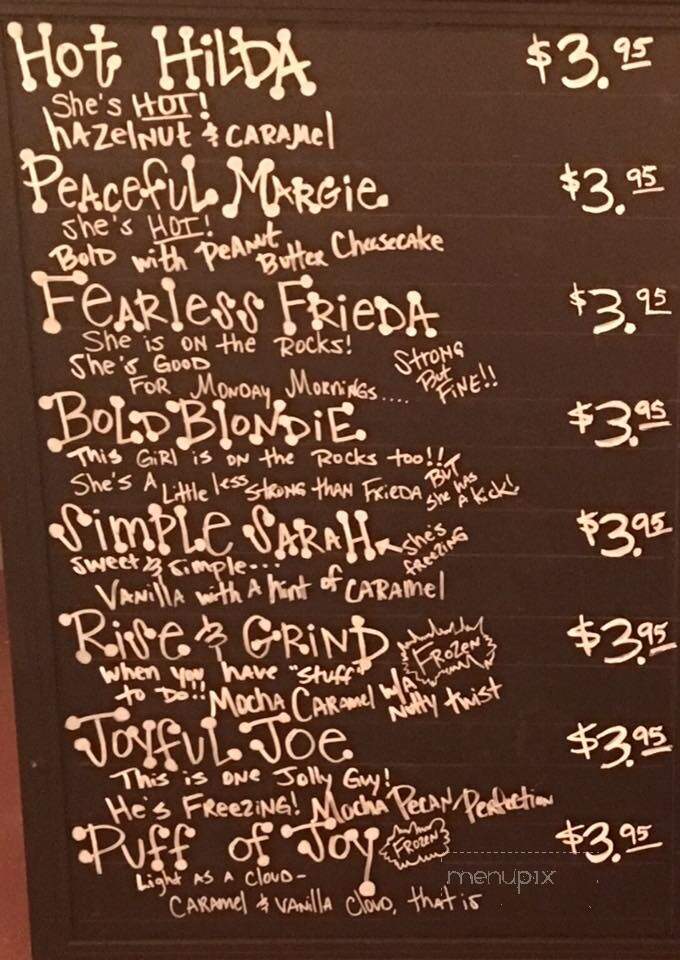 Hot Hilda $3.95
She's HOT!
hazelnut & caramel
Peaceful Margie $3.95
She's HOT!
Bold with Peanut Butter Cheesecake
Fearless Frieda $3.95
She is on the Rocks!
She's Good
For Monday Mornings....
Strong
But
Fine!!
Bold Blondie $3.95
This Girl is on the Rocks too!!
She's A Little less strong than Frieda But
she has
a kick!
Simple Sarah $3.95
she's
freezing
Sweet & Simple...
Vanilla with a hint of caramel
Rise & Grind Frozen $3.95
when you have "stuff"
to do!! Mocha Caramel w/a
Nutty twist
Joyful Joe $3.95
This is one Jolly Guy!
He's Freezing! Mocha Pecan Perfection
Puff of Joy Frozen $3.95
Light as a cloud-
Caramel & vanilla cloud, that is
menupix